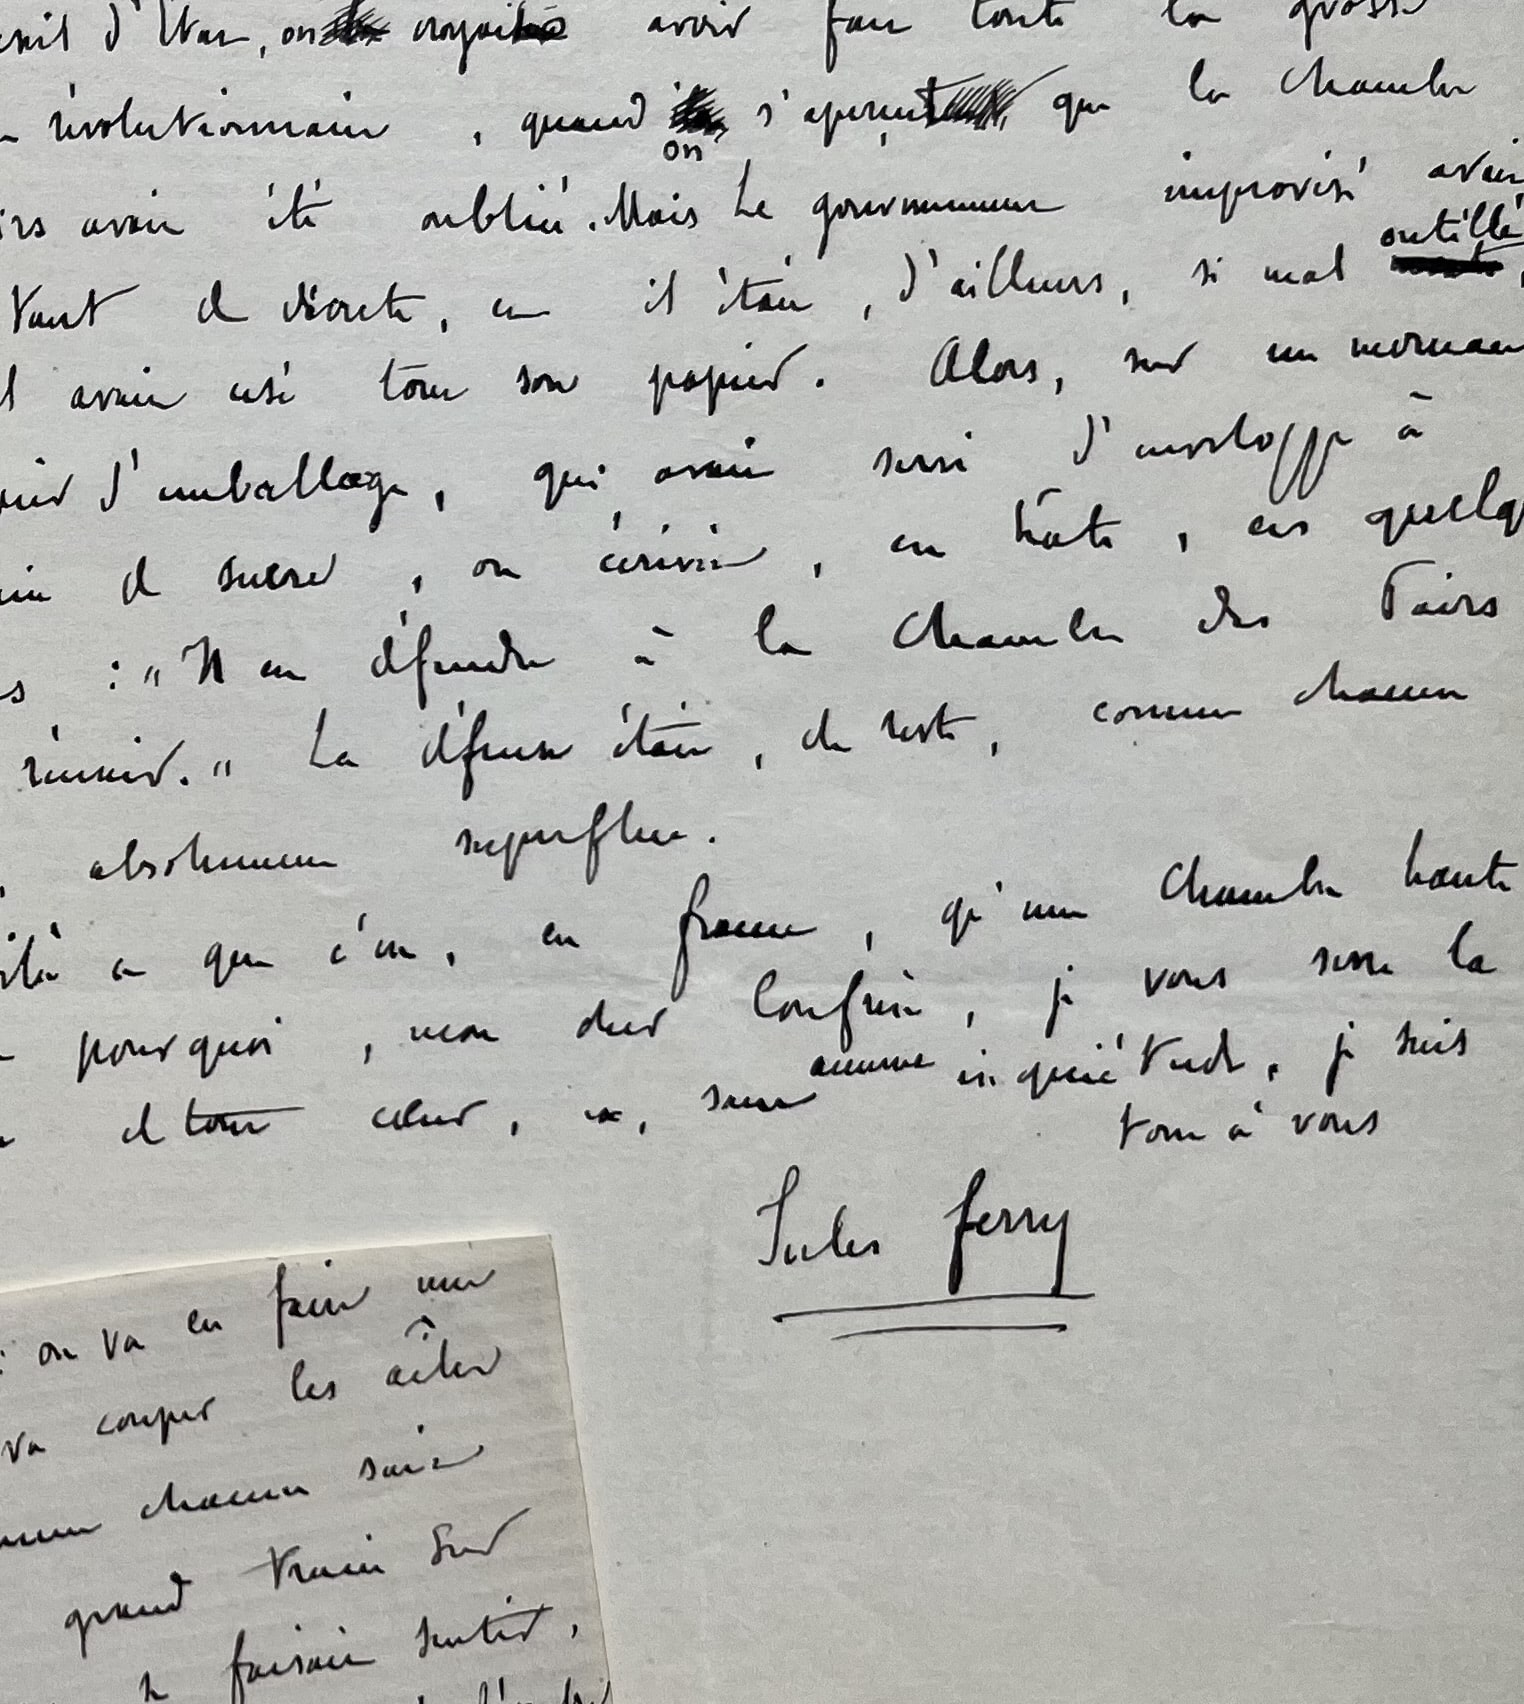 d'État, on croyait avoir fait toute la grosse
révolutionnaire, quand on s'aperçut que la Chambre
avait été oublié. Mais Le gouvernement improvisé avait
tant de décrets, et il était, d'ailleurs, si mal outillé,
avait usé tout son papier. Alors, sur un morceau
d'emballage, qui avait servi d'enveloppe à
de sucre, on écrivit, en hâte, ces quelq
: "Il est défendu à la Chambre des Pairs
réunir." La défense était, du reste, comme chacun
absolument superflue.
ce que c'est, en France, qu'une Chambre haute
pourquoi, mon cher Confrère, je vous serre la
de tout cœur, et, sans aucune inquiétude, je suis
tout à vous
Jules Ferry
on va en faire une
va couper les ailes
chacun sait
grand train sur
se faisait sentir,